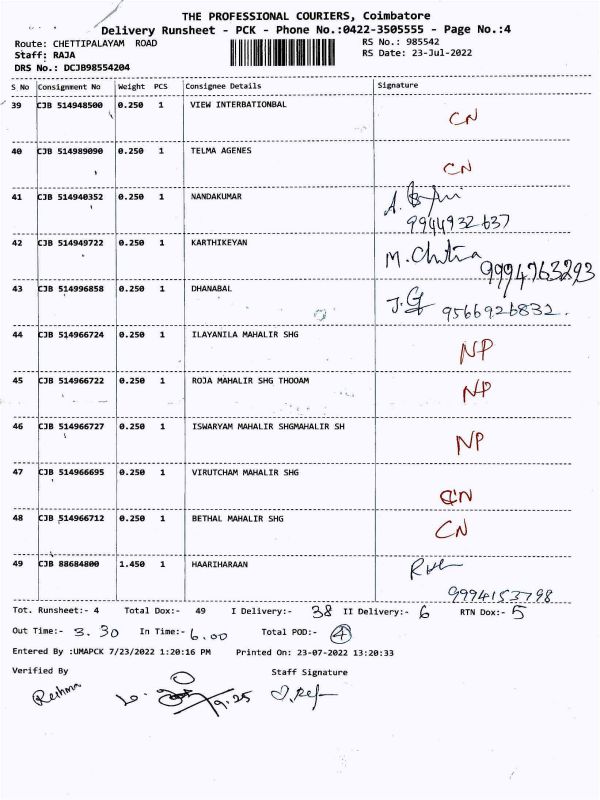 THE PROFESSIONAL COURIERS, Coimbatore
Delivery Runsheet - PCK - Phone No.:0422-3505555 - Page No.:4
Route: CHETTIPALAYAM ROAD RS No.: 985542
Staff: RAJA RS Date: 23-Jul-2022
DRS No.: DCJB98554204
S No Consignment No Weight PCS Consignee Details Signature
39 CJB 514948500 0.250 1 VIEW INTERBATIONBAL CN
40 CJB 514989090 0.250 1 TELMA AGENES CN
41 CJB 514940352 0.250 1 NANDAKUMAR A.
9944932637
42 CJB 514949722 0.250 1 KARTHIKEYAN M. Chitra
9994763293
43 CJB 514996858 0.250 1 DHANABAL J.G 9566926832.
44 CJB 514966724 0.250 1 ILAYANILA MAHALIR SHG NP
45 CJB 514966722 0.250 1 ROJA MAHALIR SHG THOOAM NP
46 CJB 514966727 0.250 1 ISWARYAM MAHALIR SHGMAHALIR SH NP
47 CJB 514966695 0.250 1 VIRUTCHAM MAHALIR SHG CN
48 CJB 514966712 0.250 1 BETHAL MAHALIR SHG CN
49 CJB 88684800 1.450 1 HAARIHARAAN
9994153798
Tot. Runsheet:- 4 Total Dox:- 49 I Delivery:- 38 II Delivery:- 6 RTN Dox:- 5
Out Time:- 3.30 In Time:- 6.00 Total POD:- 4
Entered By :UMAPCK 7/23/2022 1:20:16 PM Printed On: 23-07-2022 13:20:33
Verified By Staff Signature
Reshma 9.25